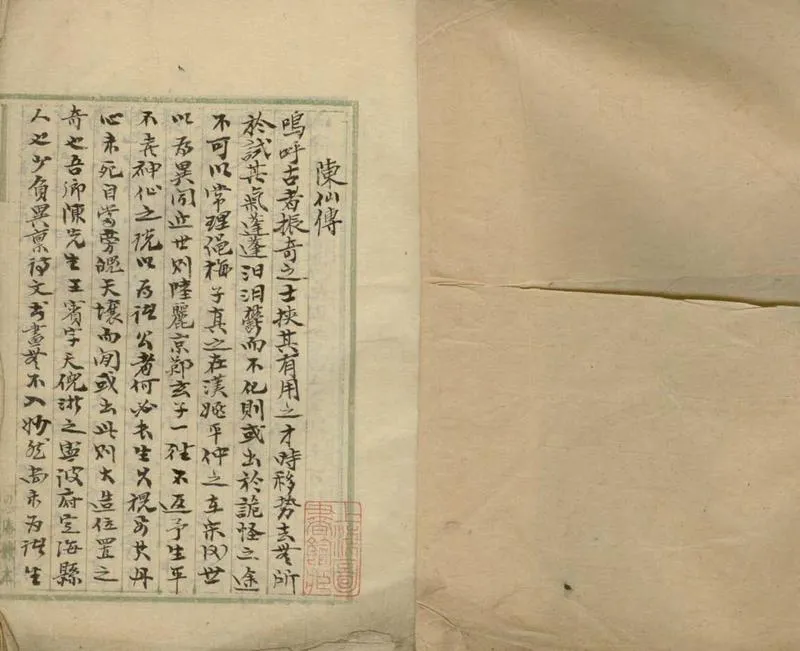 陳仙傳
嗚呼古者振奇之士挾其有用之才時移勢去無所
於試其氣蓬蓬汨汨鬱而不化則或出於詭怪之途
不可以常理繩梅子真之在漢姚平仲之在宋世
以為異聞近世則陸麗京鄭玄子一往不返予生平
不喜神仙之說以為諸公者何必長生久視要其丹
心未死自當旁魄天壤而間或出此則大造位置之
奇也吾鄉陳先生王賓字天倪浙之寧波府定海縣
人也少負異稟詩文書畫無不入妙然尚未為諸生
上海圖書館藏